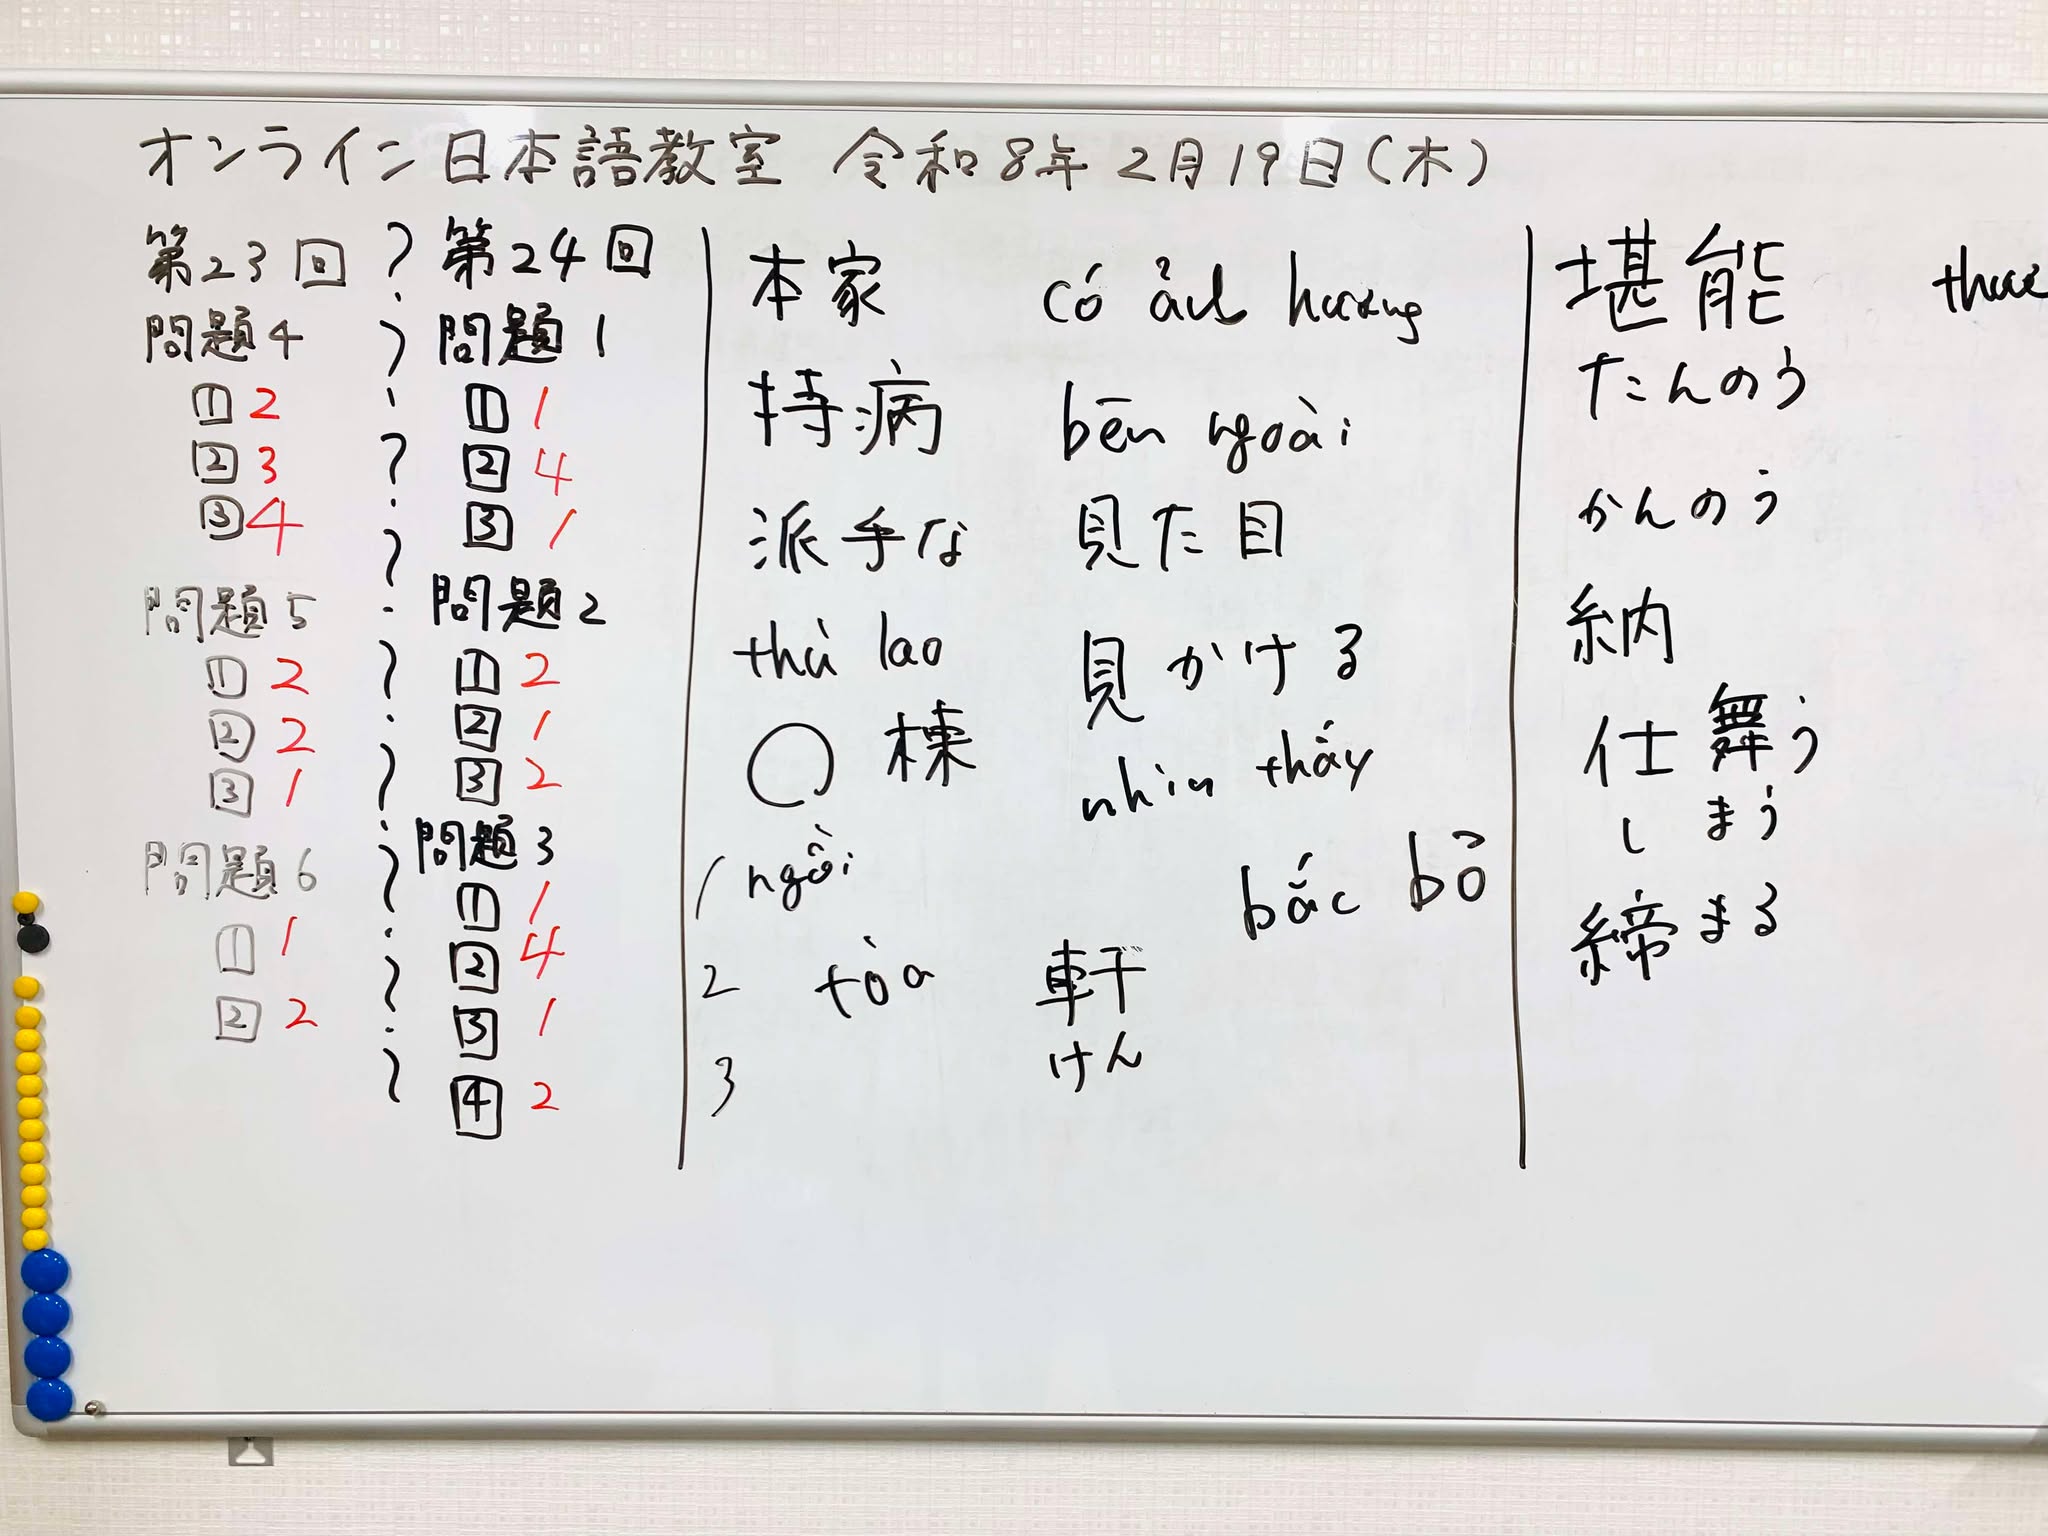 オンライン日本語教室 令和8年2月19日(木)
第23回
問題4
1 2
2 3
3 4
問題5
1 2
2 2
3 1
問題6
1 1
2 2
第24回
問題1
1 1
2 4
3 1
問題2
1 2
2 1
3 2
問題3
1 1
2 4
3 1
4 2
本家 có ảnh hương
持病 bên ngoài
派手な 見た目
thù lao 見かける
〇棟 nhìn thấy
1 ngôi bắc bỏ
2 tòa 軒
けん
3
堪能
たんのう
かんのう
納
仕舞う
しまう
締まる